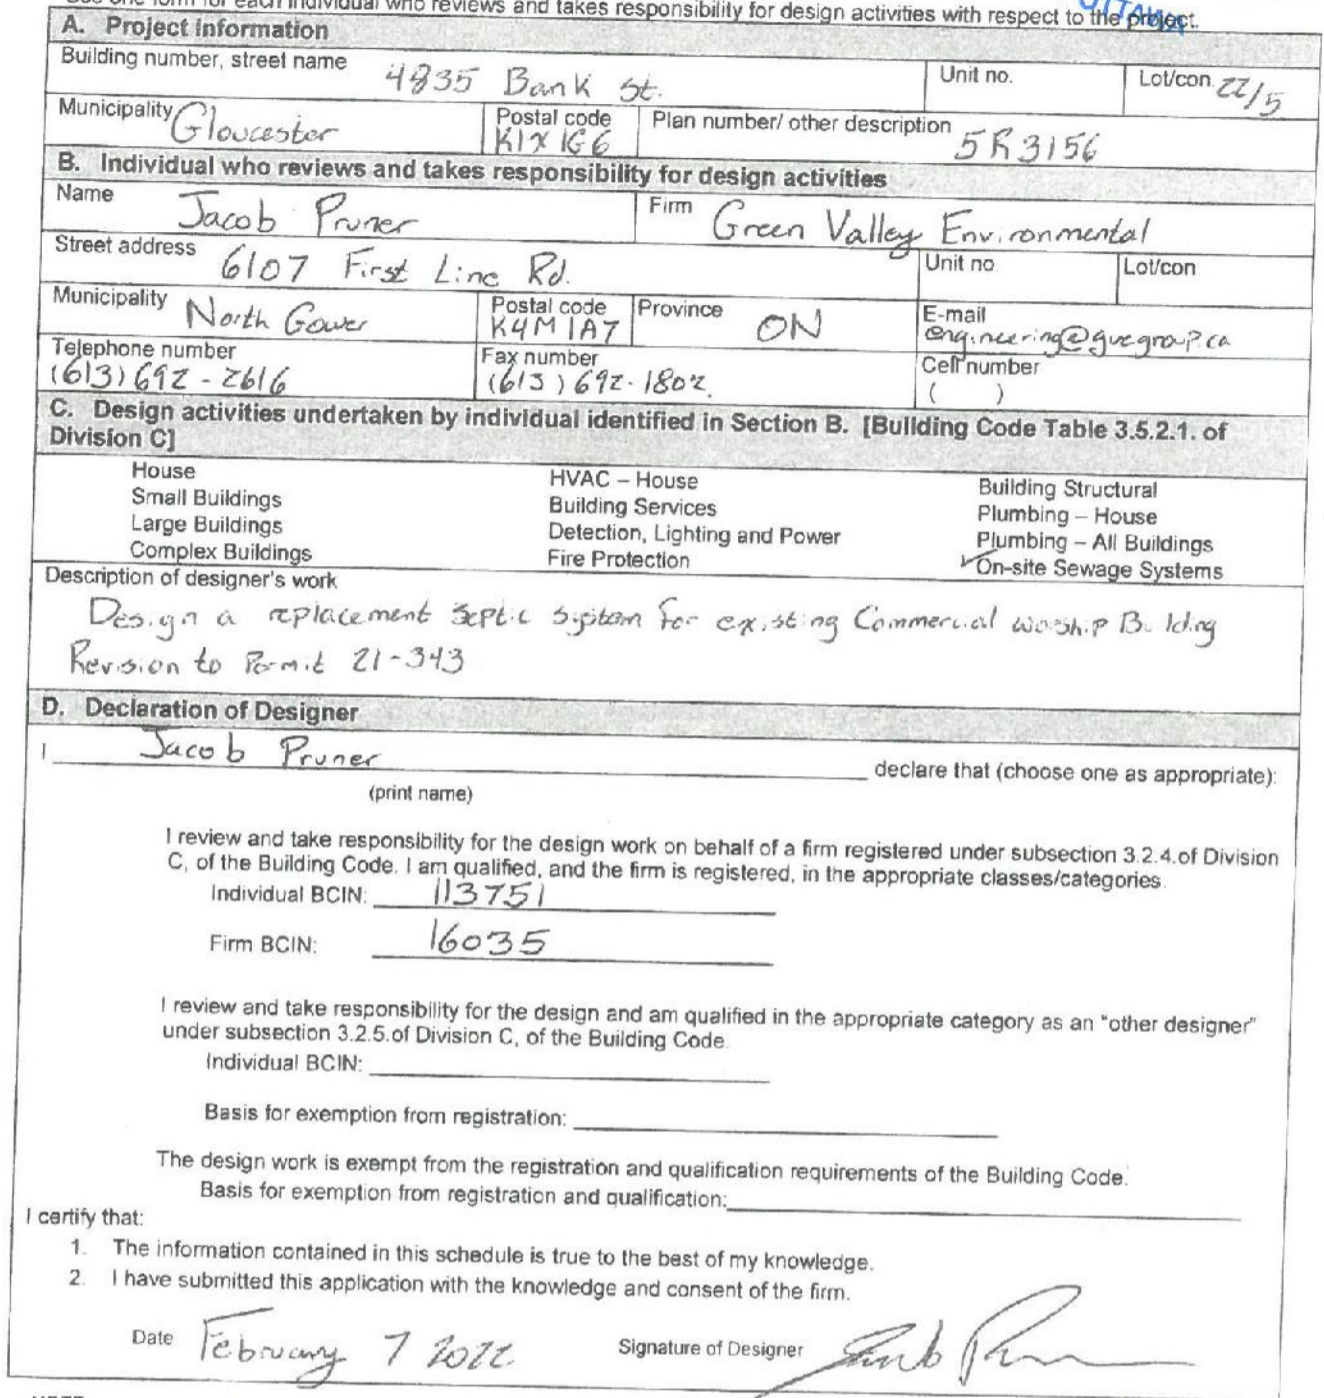 Use one form for each individual who reviews and takes responsibility for design activities with respect to the project.
OTTAWA
A. Project Information
Building number, street name 4835 Bank St.
Unit no.
Lot/con. 22/5
Municipality Gloucester
Postal code K1X 1G6
Plan number/ other description 5R3156
B. Individual who reviews and takes responsibility for design activities
Name Jacob Pruner
Firm Green Valley Environmental
Street address 6107 First Line Rd.
Unit no.
Lot/con
Municipality North Gower
Postal code K4M 1A7
Province ON
E-mail engineering@gvegroup.ca
Telephone number (613) 692-2616
Fax number (613) 692-1802
Cell number ( )
C. Design activities undertaken by individual identified in Section B. [Building Code Table 3.5.2.1. of
Division C]
House
HVAC – House
Building Structural
Small Buildings
Building Services
Plumbing – House
Large Buildings
Detection, Lighting and Power
Plumbing – All Buildings
Complex Buildings
Fire Protection
✓ On-site Sewage Systems
Description of designer's work
Design a replacement septic system for existing Commercial worship Building
Revision to Permit 21-343
D. Declaration of Designer
I Jacob Pruner declare that (choose one as appropriate):
(print name)
I review and take responsibility for the design work on behalf of a firm registered under subsection 3.2.4.of Division
C, of the Building Code. I am qualified, and the firm is registered, in the appropriate classes/categories.
Individual BCIN: 113751
Firm BCIN: 16035
I review and take responsibility for the design and am qualified in the appropriate category as an "other designer"
under subsection 3.2.5.of Division C, of the Building Code.
Individual BCIN:
Basis for exemption from registration:
The design work is exempt from the registration and qualification requirements of the Building Code.
Basis for exemption from registration and qualification:
I certify that:
1. The information contained in this schedule is true to the best of my knowledge.
2. I have submitted this application with the knowledge and consent of the firm.
Date February 7 2022
Signature of Designer